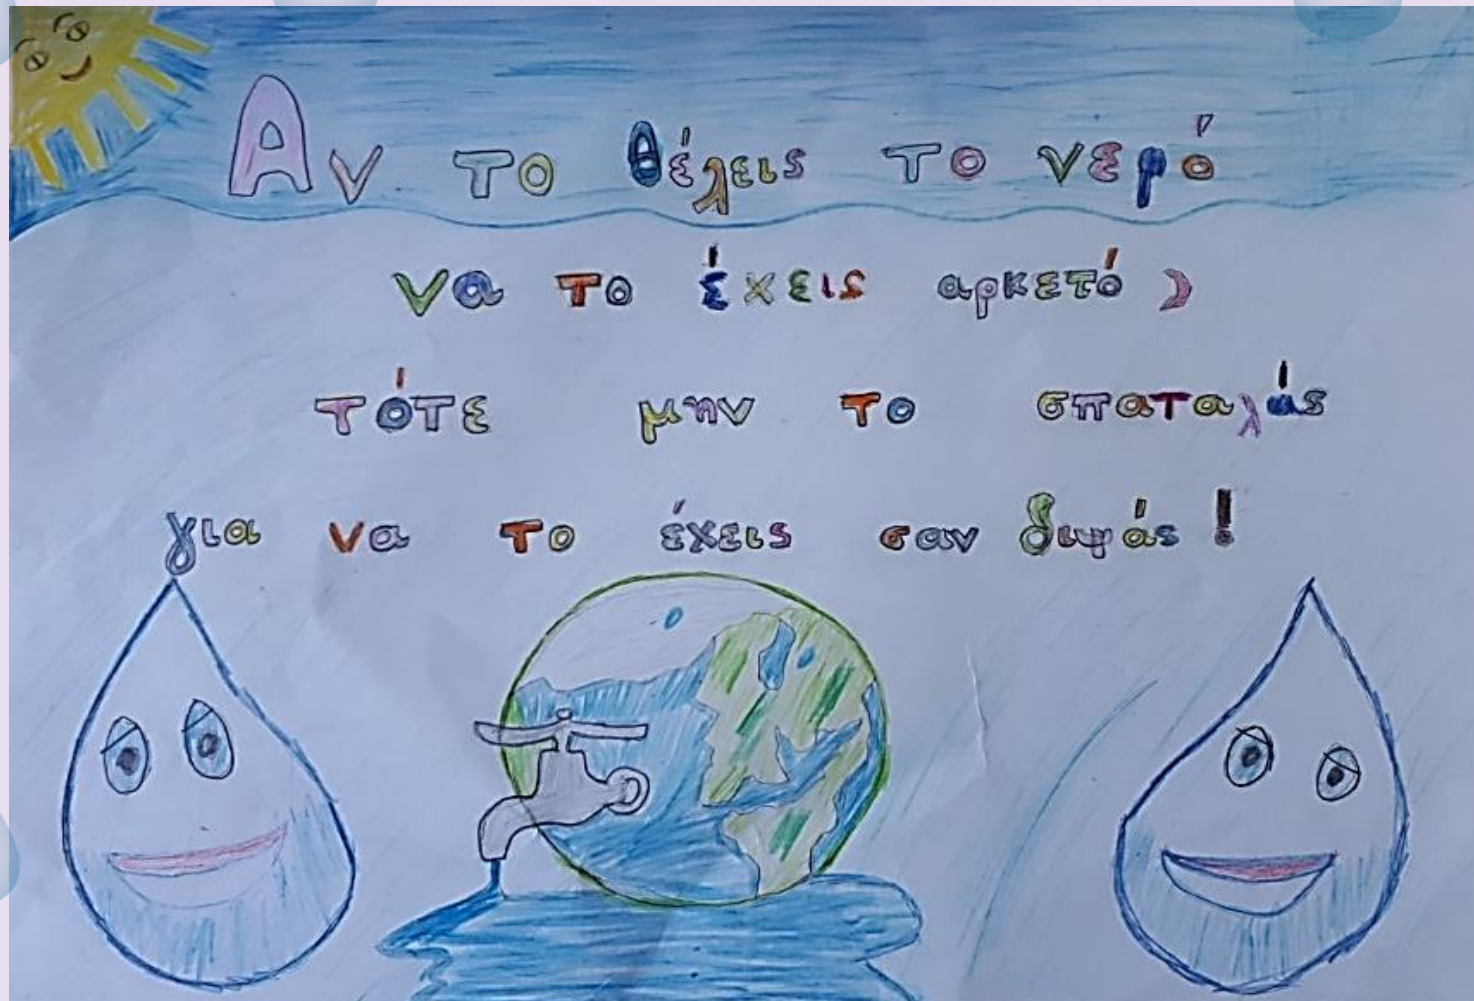 Αν το θέλεις το νερό
να το έχεις αρκετό,
τότε μην το σπαταλάς
για να το έχεις σαν διψάς!